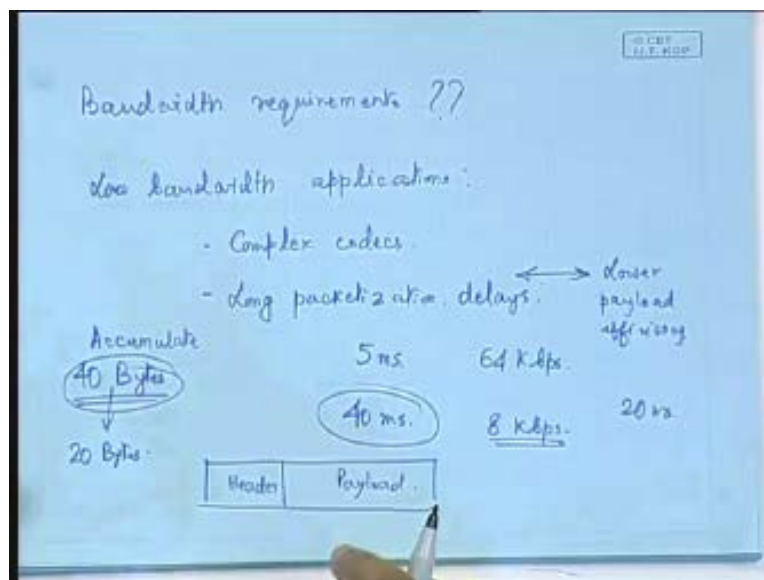 © CET
I.I.T. KGP
Bandwidth requirements ??
Low bandwidth applications:
- Complex codecs.
- Long packetization delays. ↔ Lower
payload
efficiency
Accumulate
40 Bytes
5 ms. 64 Kbps.
40 ms. 8 Kbps. 20 ms
20 Bytes.
Header Payload.